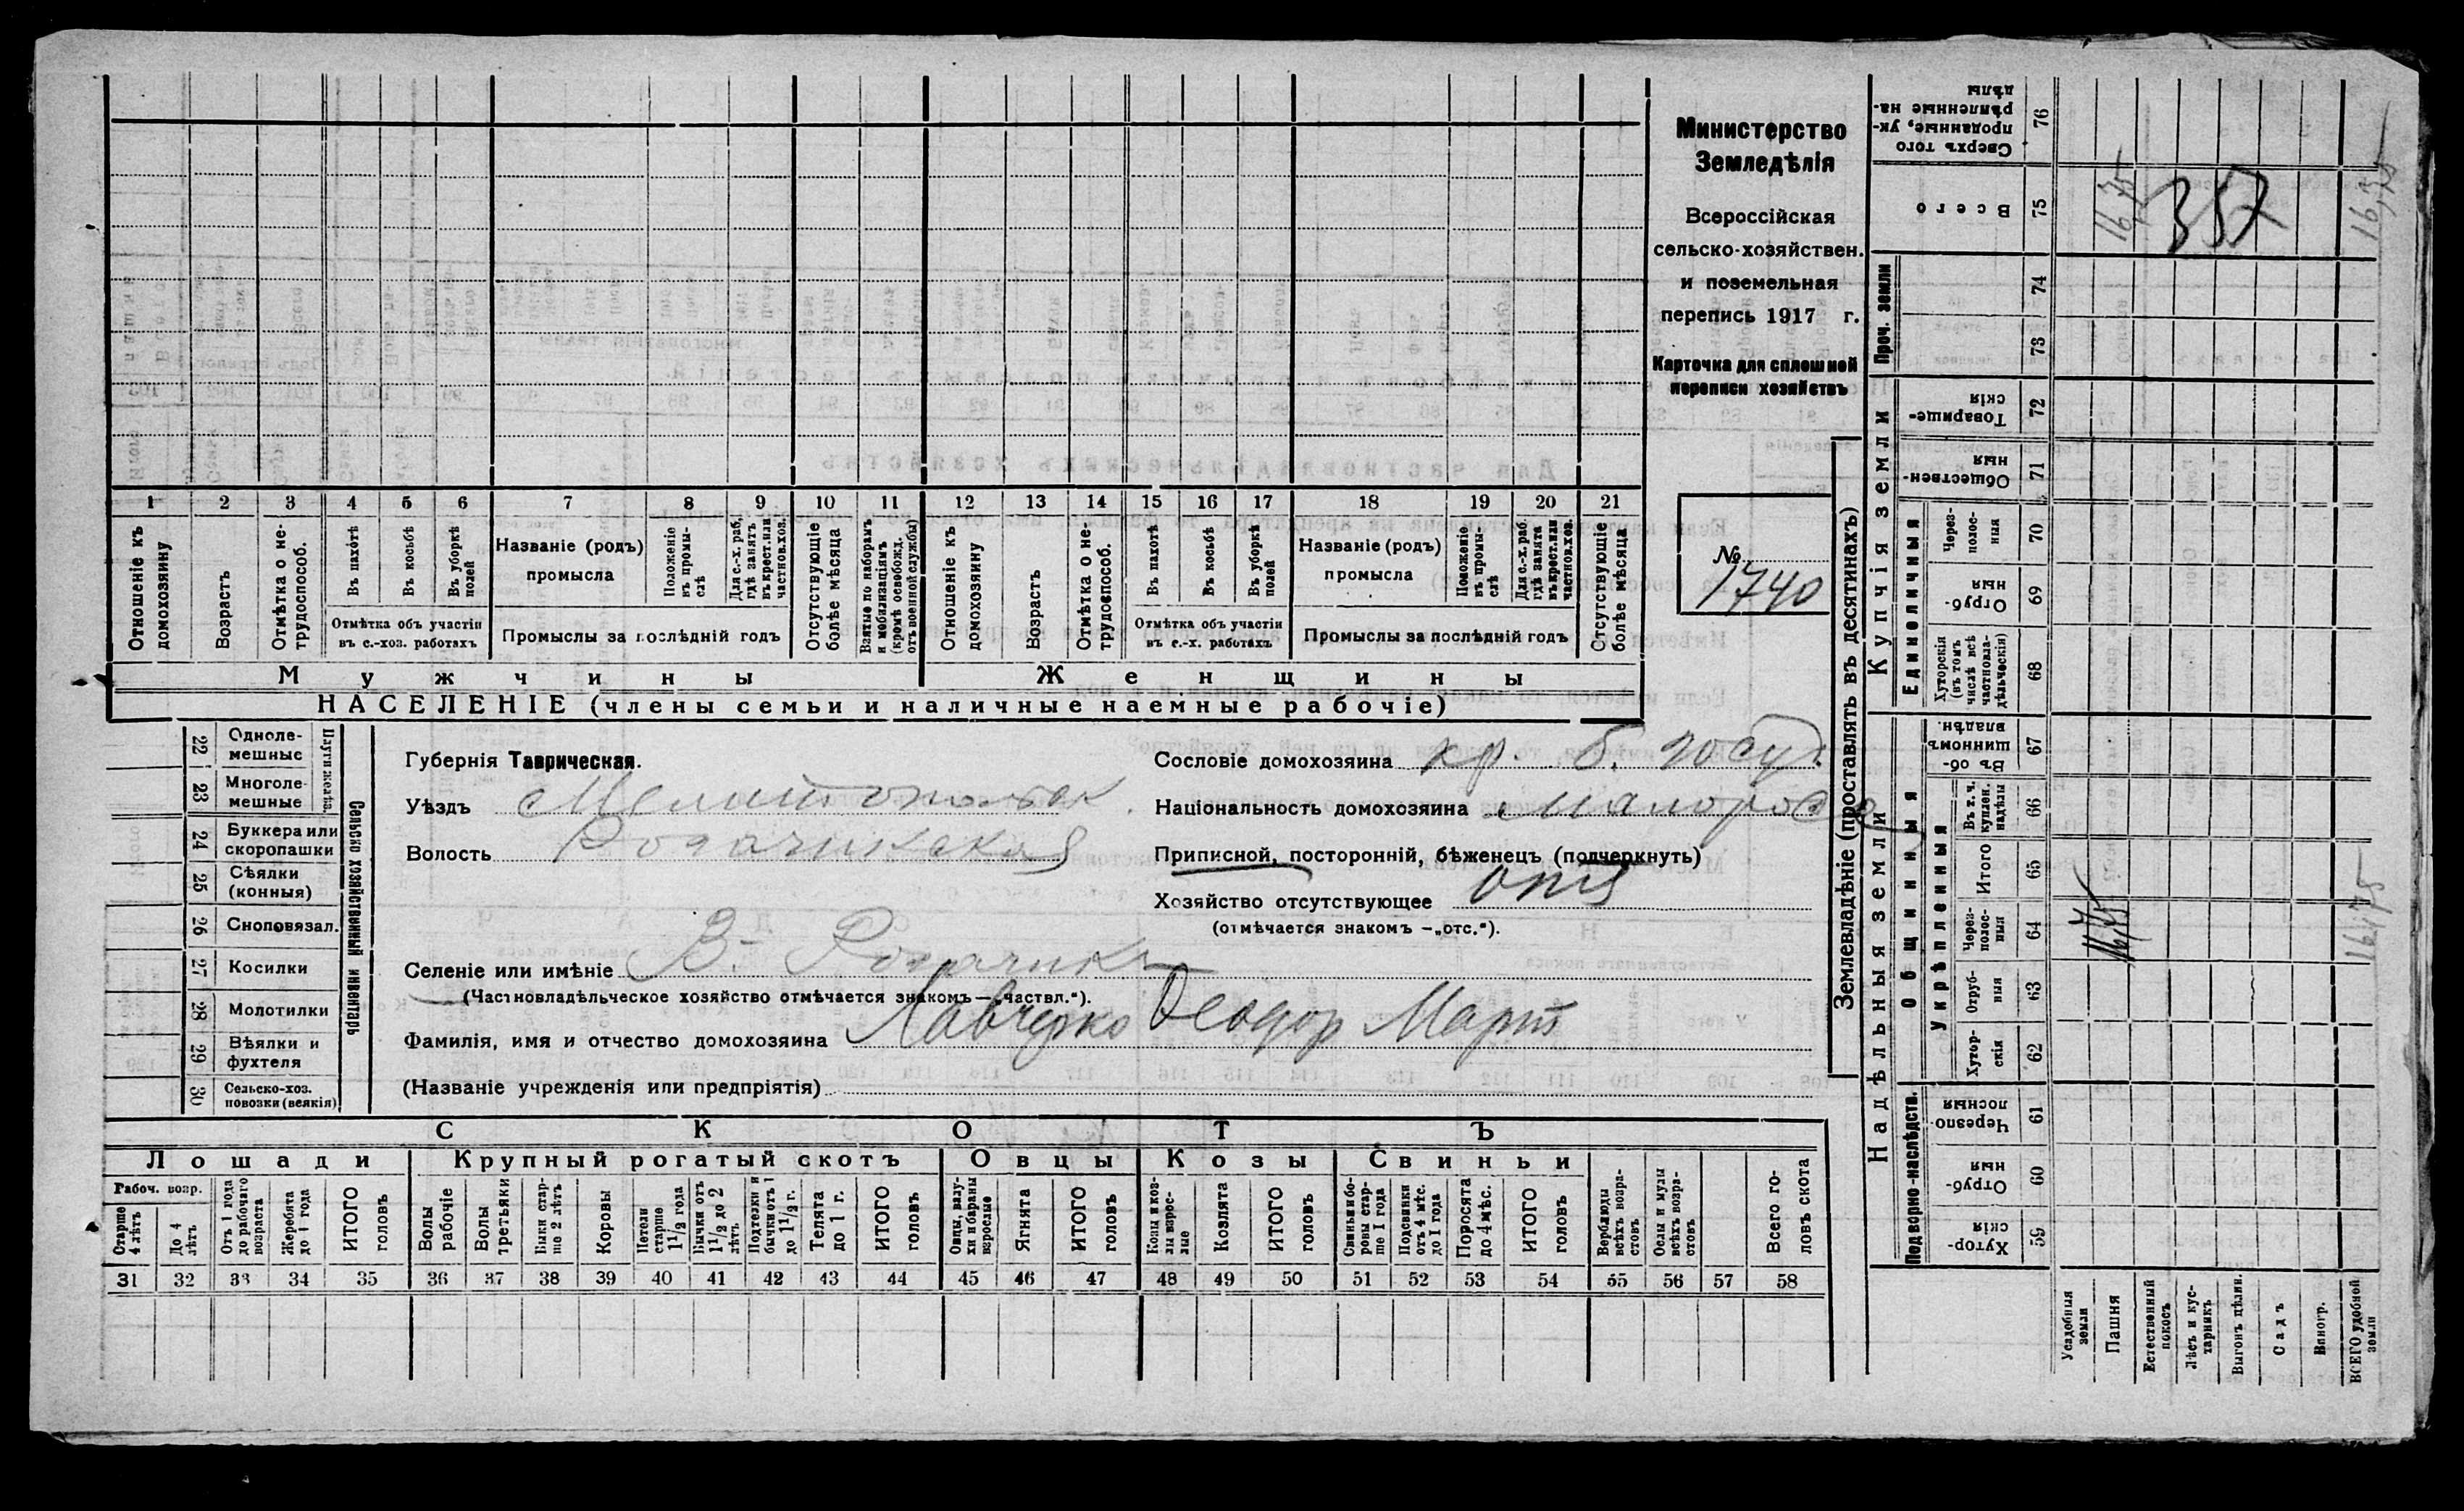 Министерство
Земледѣлія
Всероссійская
сельско-хозяйствен.
и поземельная
перепись 1917 г.
Карточка для сплошной
переписи хозяйствъ
№
1740
1 2 3 4 5 6 7 8 9 10 11 12 13 14 15 16 17 18 19 20 21
Отношеніе къ домохозяину
Возрастъ
Отмѣтка о не-трудоспособ.
Въ пахотѣ
Въ косьбѣ
Въ уборкѣ полей
Отмѣтка объ участіи
въ с.-хоз. работахъ
Названіе (родъ)
промысла
Положеніе въ промы-слѣ
Для с.-х. раб. гдѣ занятъ въ крест. или частнов. хоз.
Промыслы за послѣдній годъ
Отсутствующіе болѣе мѣсяца
Взятые по наборамъ и мобилизаціямъ (кромѣ освобожд. отъ военной службы)
Отношеніе къ домохозяину
Возрастъ
Отмѣтка о не-трудоспособ.
Въ пахотѣ
Въ косьбѣ
Въ уборкѣ полей
Отмѣтка объ участіи
въ с.-х. работахъ
Названіе (родъ)
промысла
Положеніе въ промы-слѣ
Для с.-х. раб. гдѣ занята въ крест. или частнов. хоз.
Промыслы за послѣдній годъ
Отсутствующіе болѣе мѣсяца
Мужчины
Женщины
НАСЕЛЕНІЕ (члены семьи и наличные наемные рабочіе)
22 Одноле-мешные
23 Многоле-мешные
24 Буккера или скоропашки
25 Сѣялки (конныя)
26 Сноповязал.
27 Косилки
28 Молотилки
29 Вѣялки и фухтеля
30 Сельско-хоз. повозки (всякія)
Плуги желѣз.
Сельско хозяйственный инвентарь
Губернія Таврическая.
Уѣздъ Мелитопольск.
Волость Рогачикская
Селеніе или имѣніе В. Рогачик
(Частновладѣльческое хозяйство отмѣчается знакомъ—„частвл.“).
Фамилія, имя и отчество домохозяина Лавченко Феодор Март
(Названіе учрежденія или предпріятія)
Сословіе домохозяина кр. б. госуд.
Національность домохозяина малоросс
Приписной, посторонній, бѣженецъ (подчеркнуть)
Хозяйство отсутствующее отс
(отмѣчается знакомъ —„отс.“).
СКОТЪ
Лошади
Крупный рогатый скотъ
Овцы
Козы
Свиньи
Рабоч. возр.
Старше 4 лѣтъ
До 4 лѣтъ
Отъ 1 года до рабочаго возраста
Жеребята до 1 года
ИТОГО головъ
Волы рабочіе
Волы третьяки
Быки стар-ше 2 лѣтъ
Коровы
Нетели старше 1½ года
Бычки отъ 1½ до 2 лѣтъ
Подтелки и бычки отъ 1 до 1½ г.
Телята до 1 г.
ИТОГО головъ
Овцы, валу-хи и бараны взрослые
Ягнята
ИТОГО головъ
Козы и коз-лы взрос-лые
Козлята
ИТОГО головъ
Свиньи и бо-ровы стар-ше 1 года
Подсвинки отъ 4 мѣс. до 1 года
Поросята до 4 мѣс.
ИТОГО головъ
Верблюды всѣхъ возра-стовъ
Ослы и мулы всѣхъ возра-стовъ
Всего го-ловъ скота
31 32 33 34 35 36 37 38 39 40 41 42 43 44 45 46 47 48 49 50 51 52 53 54 55 56 57 58
Землевладѣніе (проставлять въ десятинахъ)
Надѣльныя земли
Купчія земли
Проч. земли
Подворно-наслѣдств.
Общинныя
Укрѣпленныя
Единоличныя
Сверхъ того проданные, ук-рѣпленные на-дѣлы 76
Всего 75
74
73
Товарище-скія 72
Обществен-ныя 71
Через-полос-ныя 70
Отруб-ныя 69
Хуторскія (въ томъ числѣ всѣ частновла-дѣльческія) 68
Въ об-щинномъ владѣн. 67
Въ т. ч. куплен. надѣлы 66
Итого 65
Через-полос-ныя 64
Отруб-ныя 63
Хутор-скія 62
Черезпо-лосныя 61
Отруб-ныя 60
Хутор-скія 59
16,75
357
16,75
16,75
16,75
Усадебныя земли
Пашня
Естественный покосъ
Лѣсъ и кус-тарникъ
Выгонъ цѣлин.
Садъ
Виногр.
ВСЕГО удобной земли